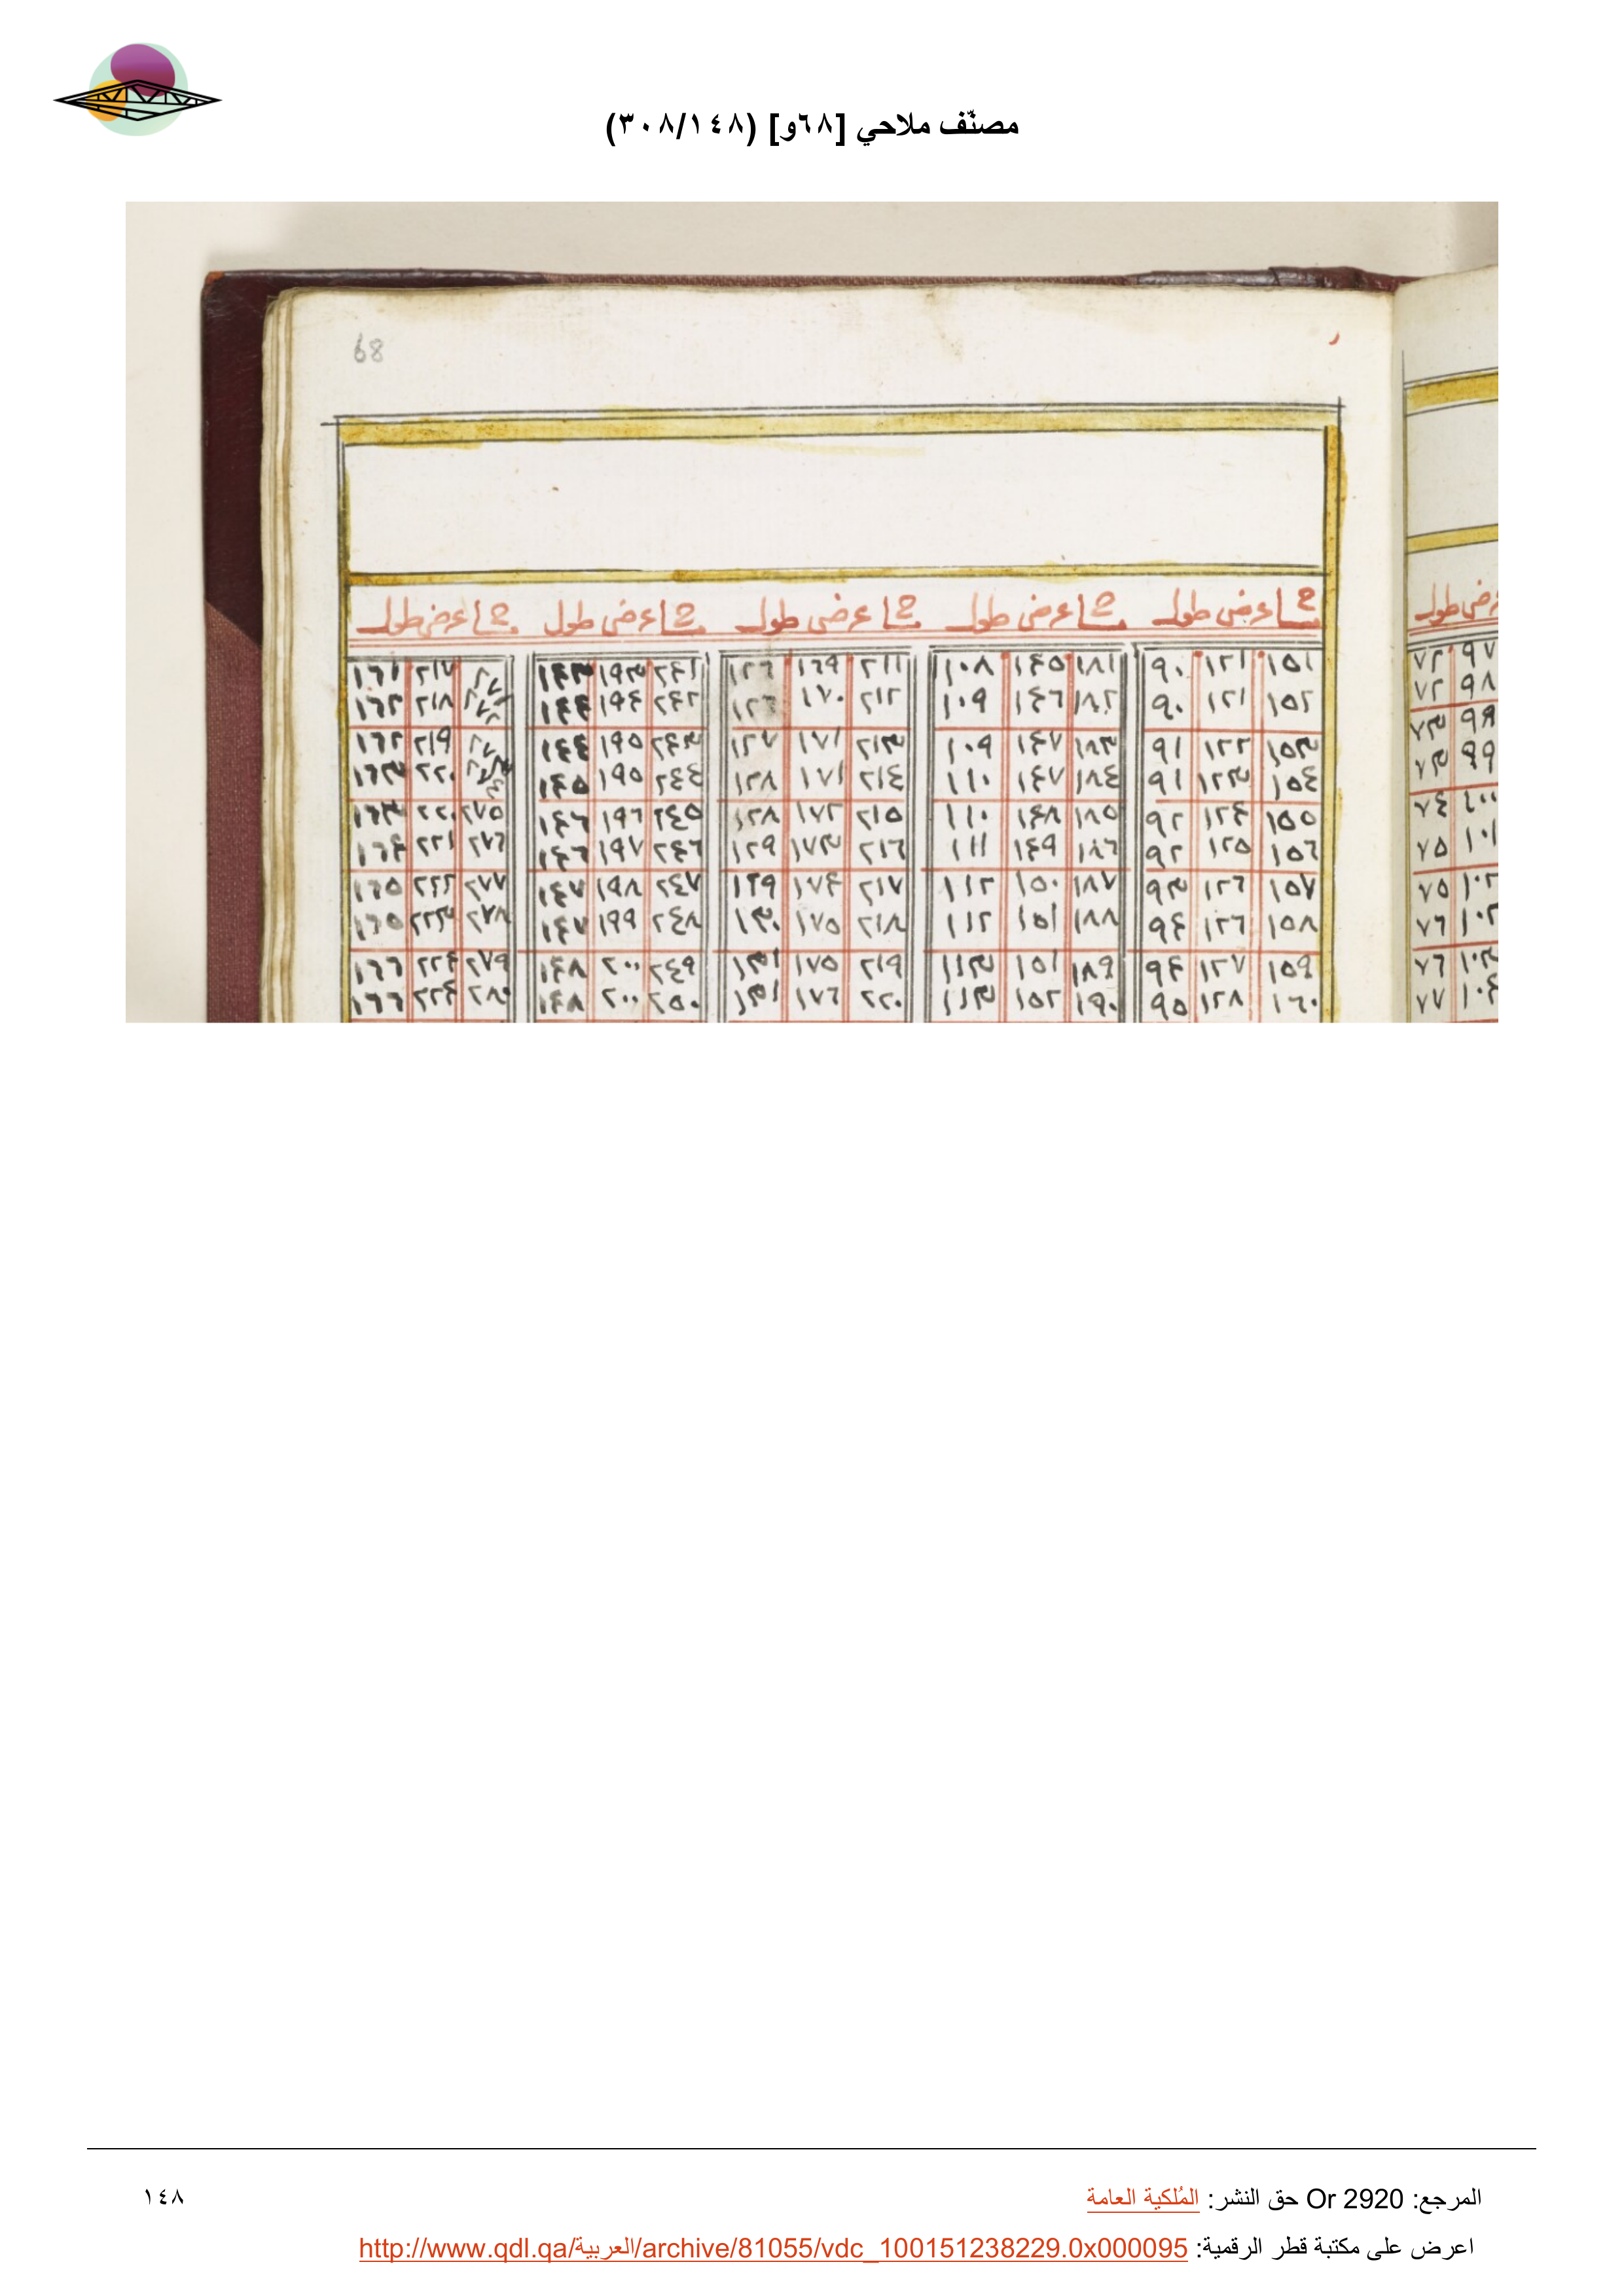 مصنّف ملاحي [٦٨و] (٣٠٨/١٤٨)
68
عرض طول عرض طول عرض طول عرض طول عرض طول عرض طول
٩٧ ٧٢ ١٥١ ١٢١ ٩٠ ١٨١ ١٤٥ ١٠٨ ٢١١ ١٦٩ ١٢٦ ٢٤١ ١٩٣ ١٤٣ ٢١٧ ١٦١
٩٨ ٧٢ ١٥٢ ١٢١ ٩٠ ١٨٢ ١٤٦ ١٠٩ ٢١٢ ١٧٠ ١٢٦ ٢٤٢ ١٩٤ ١٤٤ ٢١٨ ١٦٢
٧٣ ١٥٣ ١٢٢ ٩١ ١٨٣ ١٤٧ ١٠٩ ٢١٣ ١٧١ ١٢٧ ٢٤٣ ١٩٥ ١٤٤ ٢١٩ ١٦٢
٩٩ ٧٣ ١٥٤ ١٢٣ ٩١ ١٨٤ ١٤٧ ١١٠ ٢١٤ ١٧١ ١٢٨ ٢٤٤ ١٩٥ ١٤٥ ٢٢٠ ١٦٣
١٠٠ ٧٤ ١٥٥ ١٢٤ ٩٢ ١٨٥ ١٤٨ ١١٠ ٢١٥ ١٧٢ ١٢٨ ٢٤٥ ١٩٦ ١٤٦ ٢٧٥ ٢٢٠ ١٦٣
١٠١ ٧٥ ١٥٦ ١٢٥ ٩٢ ١٨٦ ١٤٩ ١١١ ٢١٦ ١٧٣ ١٢٩ ٢٤٦ ١٩٧ ١٤٦ ٢٧٦ ٢٢١ ١٦٤
١٠٢ ٧٥ ١٥٧ ١٢٦ ٩٣ ١٨٧ ١٥٠ ١١٢ ٢١٧ ١٧٤ ١٢٩ ٢٤٧ ١٩٨ ١٤٧ ٢٧٧ ٢٢٢ ١٦٥
١٠٢ ٧٦ ١٥٨ ١٢٦ ٩٤ ١٨٨ ١٥١ ١١٢ ٢١٨ ١٧٥ ١٣٠ ٢٤٨ ١٩٩ ١٤٧ ٢٧٨ ٢٢٣ ١٦٥
١٠٣ ٧٦ ١٥٩ ١٢٧ ٩٤ ١٨٩ ١٥١ ١١٣ ٢١٩ ١٧٥ ١٣١ ٢٤٩ ٢٠٠ ١٤٨ ٢٧٩ ٢٢٤ ١٦٦
١٠٤ ٧٧ ١٦٠ ١٢٨ ٩٥ ١٩٠ ١٥٢ ١١٣ ٢٢٠ ١٧٦ ١٣١ ٢٥٠ ٢٠٠ ١٤٨ ٢٨٠ ٢٢٤ ١٦٦
المرجع: Or 2920 حق النشر: المُلكية العامة ١٤٨
اعرض على مكتبة قطر الرقمية: http://www.qdl.qa/العربية/archive/81055/vdc_100151238229.0x000095